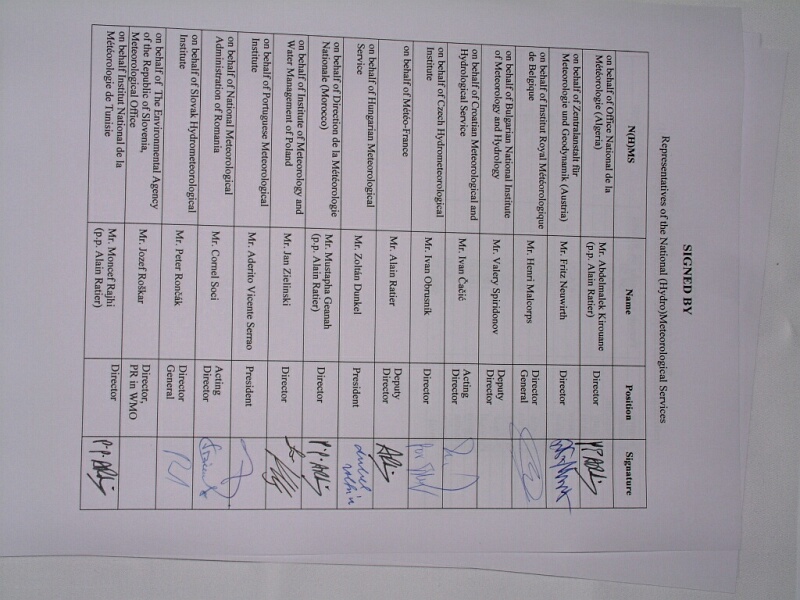 SIGNED BY
Representatives of the National (Hydro)Meteorological Services
N(H)MS Name Position Signature
on behalf of Office National de la Météorologie (Algeria) Mr. Abdelmalek Kirouane (p.p. Alain Ratier) Director
on behalf of Zentralanstalt für Meteorologie und Geodynamik (Austria) Mr. Fritz Neuwirth Director
on behalf of Institut Royal Météorologique de Belgique Mr. Henri Malcorps Director General
on behalf of Bulgarian National Institute of Meteorology and Hydrology Mr. Valery Spiridonov Deputy Director
on behalf of Croatian Meteorological and Hydrological Service Mr. Ivan Čačić Acting Director
on behalf of Czech Hydrometeorological Institute Mr. Ivan Obrusnik Director
on behalf of Météo-France Mr. Alain Ratier Deputy Director
on behalf of Hungarian Meteorological Service Mr. Zoltán Dunkel President
on behalf of Direction de la Météorologie Nationale (Morocco) Mr. Mustapha Geanah (p.p. Alain Ratier) Director
on behalf of Institute of Meteorology and Water Management of Poland Mr. Jan Zielinski Director
on behalf of Portuguese Meteorological Institute Mr. Aderito Vicente Serrao President
on behalf of National Meteorological Administration of Romania Mr. Cornel Soci Acting Director
on behalf of Slovak Hydrometeorological Institute Mr. Peter Rončák Director General
on behalf of The Environmental Agency of the Republic of Slovenia, Meteorological Office Mr. Jozef Roškar Director, PR in WMO
on behalf Institut National de la Météorologie de Tunisie Mr. Moncef Rajhi (p.p. Alain Ratier) Director